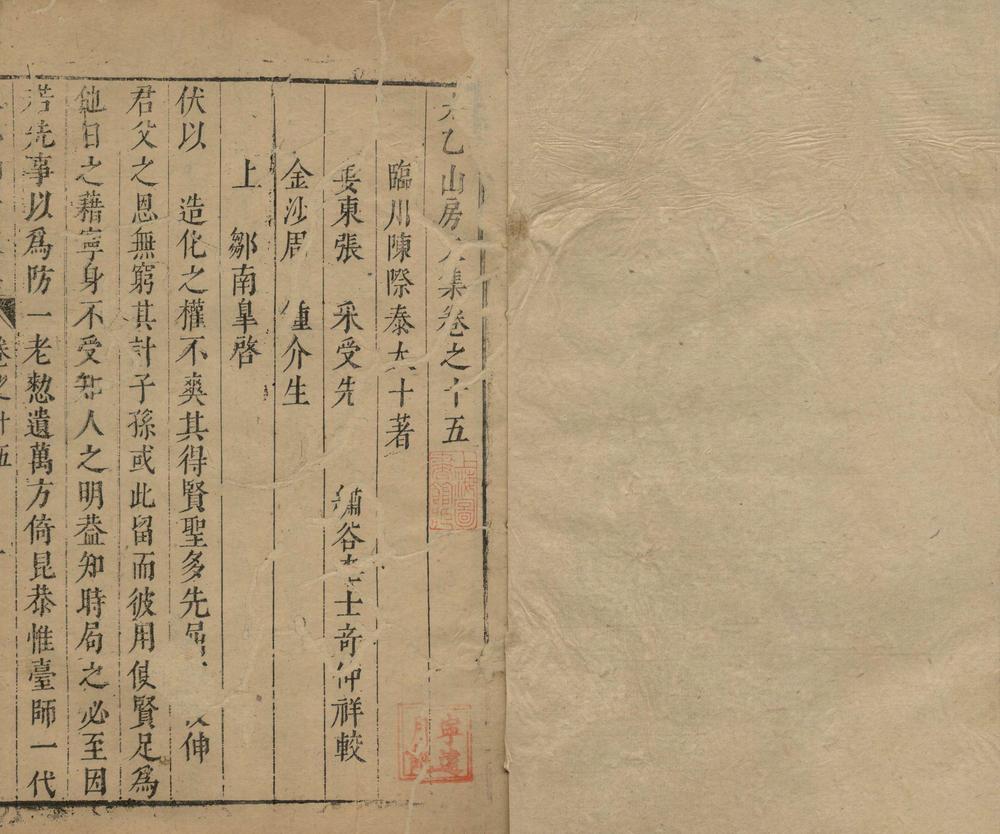 乙山房集卷之十五
臨川陳際泰大士著
婁東張 采受先
金沙周 鍾介生
繡谷李士奇仲祥較
上 鄒南臯啓
伏以 造化之權不爽其得賢聖多先 伸
君父之恩無窮其計子孫或此留而彼用俾賢足爲
他日之藉寧身不受知人之明葢知時局之必至因
若先事以爲防一老憖遺萬方倚昆恭惟臺師一代
卷之十五
上海圖書館藏